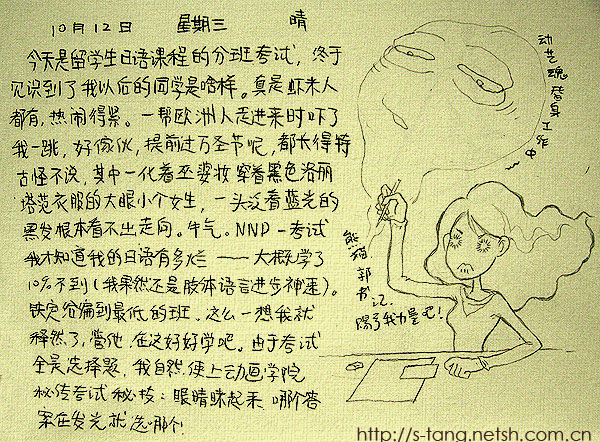 10月12日 星期三 晴
今天是留学生日语课程的分班考试，终于
见识到了我以后的同学是啥样。真是虾米人
都有，热闹得紧。一帮欧洲人走进来时吓了
我一跳，好傢伙，提前过万圣节呢，都长得特
古怪不说，其中一化着巫婆妆穿着黑色洛丽
塔范衣服的大眼小个女生，一头泛着蓝光的
黑发根本看不出走向。牛气。NND一考试
我才知道我的日语有多烂——大概学了
10%不到(我果然还是肢体语言进步神速)。
铁定分痛到最低的班。这么一想我就
释然了，管他，在这好好学吧。由于考试
全是选择题，我自然使上动画学院
秘传考试秘技：眼睛眯起来，哪个答
案在发光就选哪个！
动艺魂替身
工作中
熊猫郭书记
赐予我力量吧！
http://s-tang.netsh.com.cn